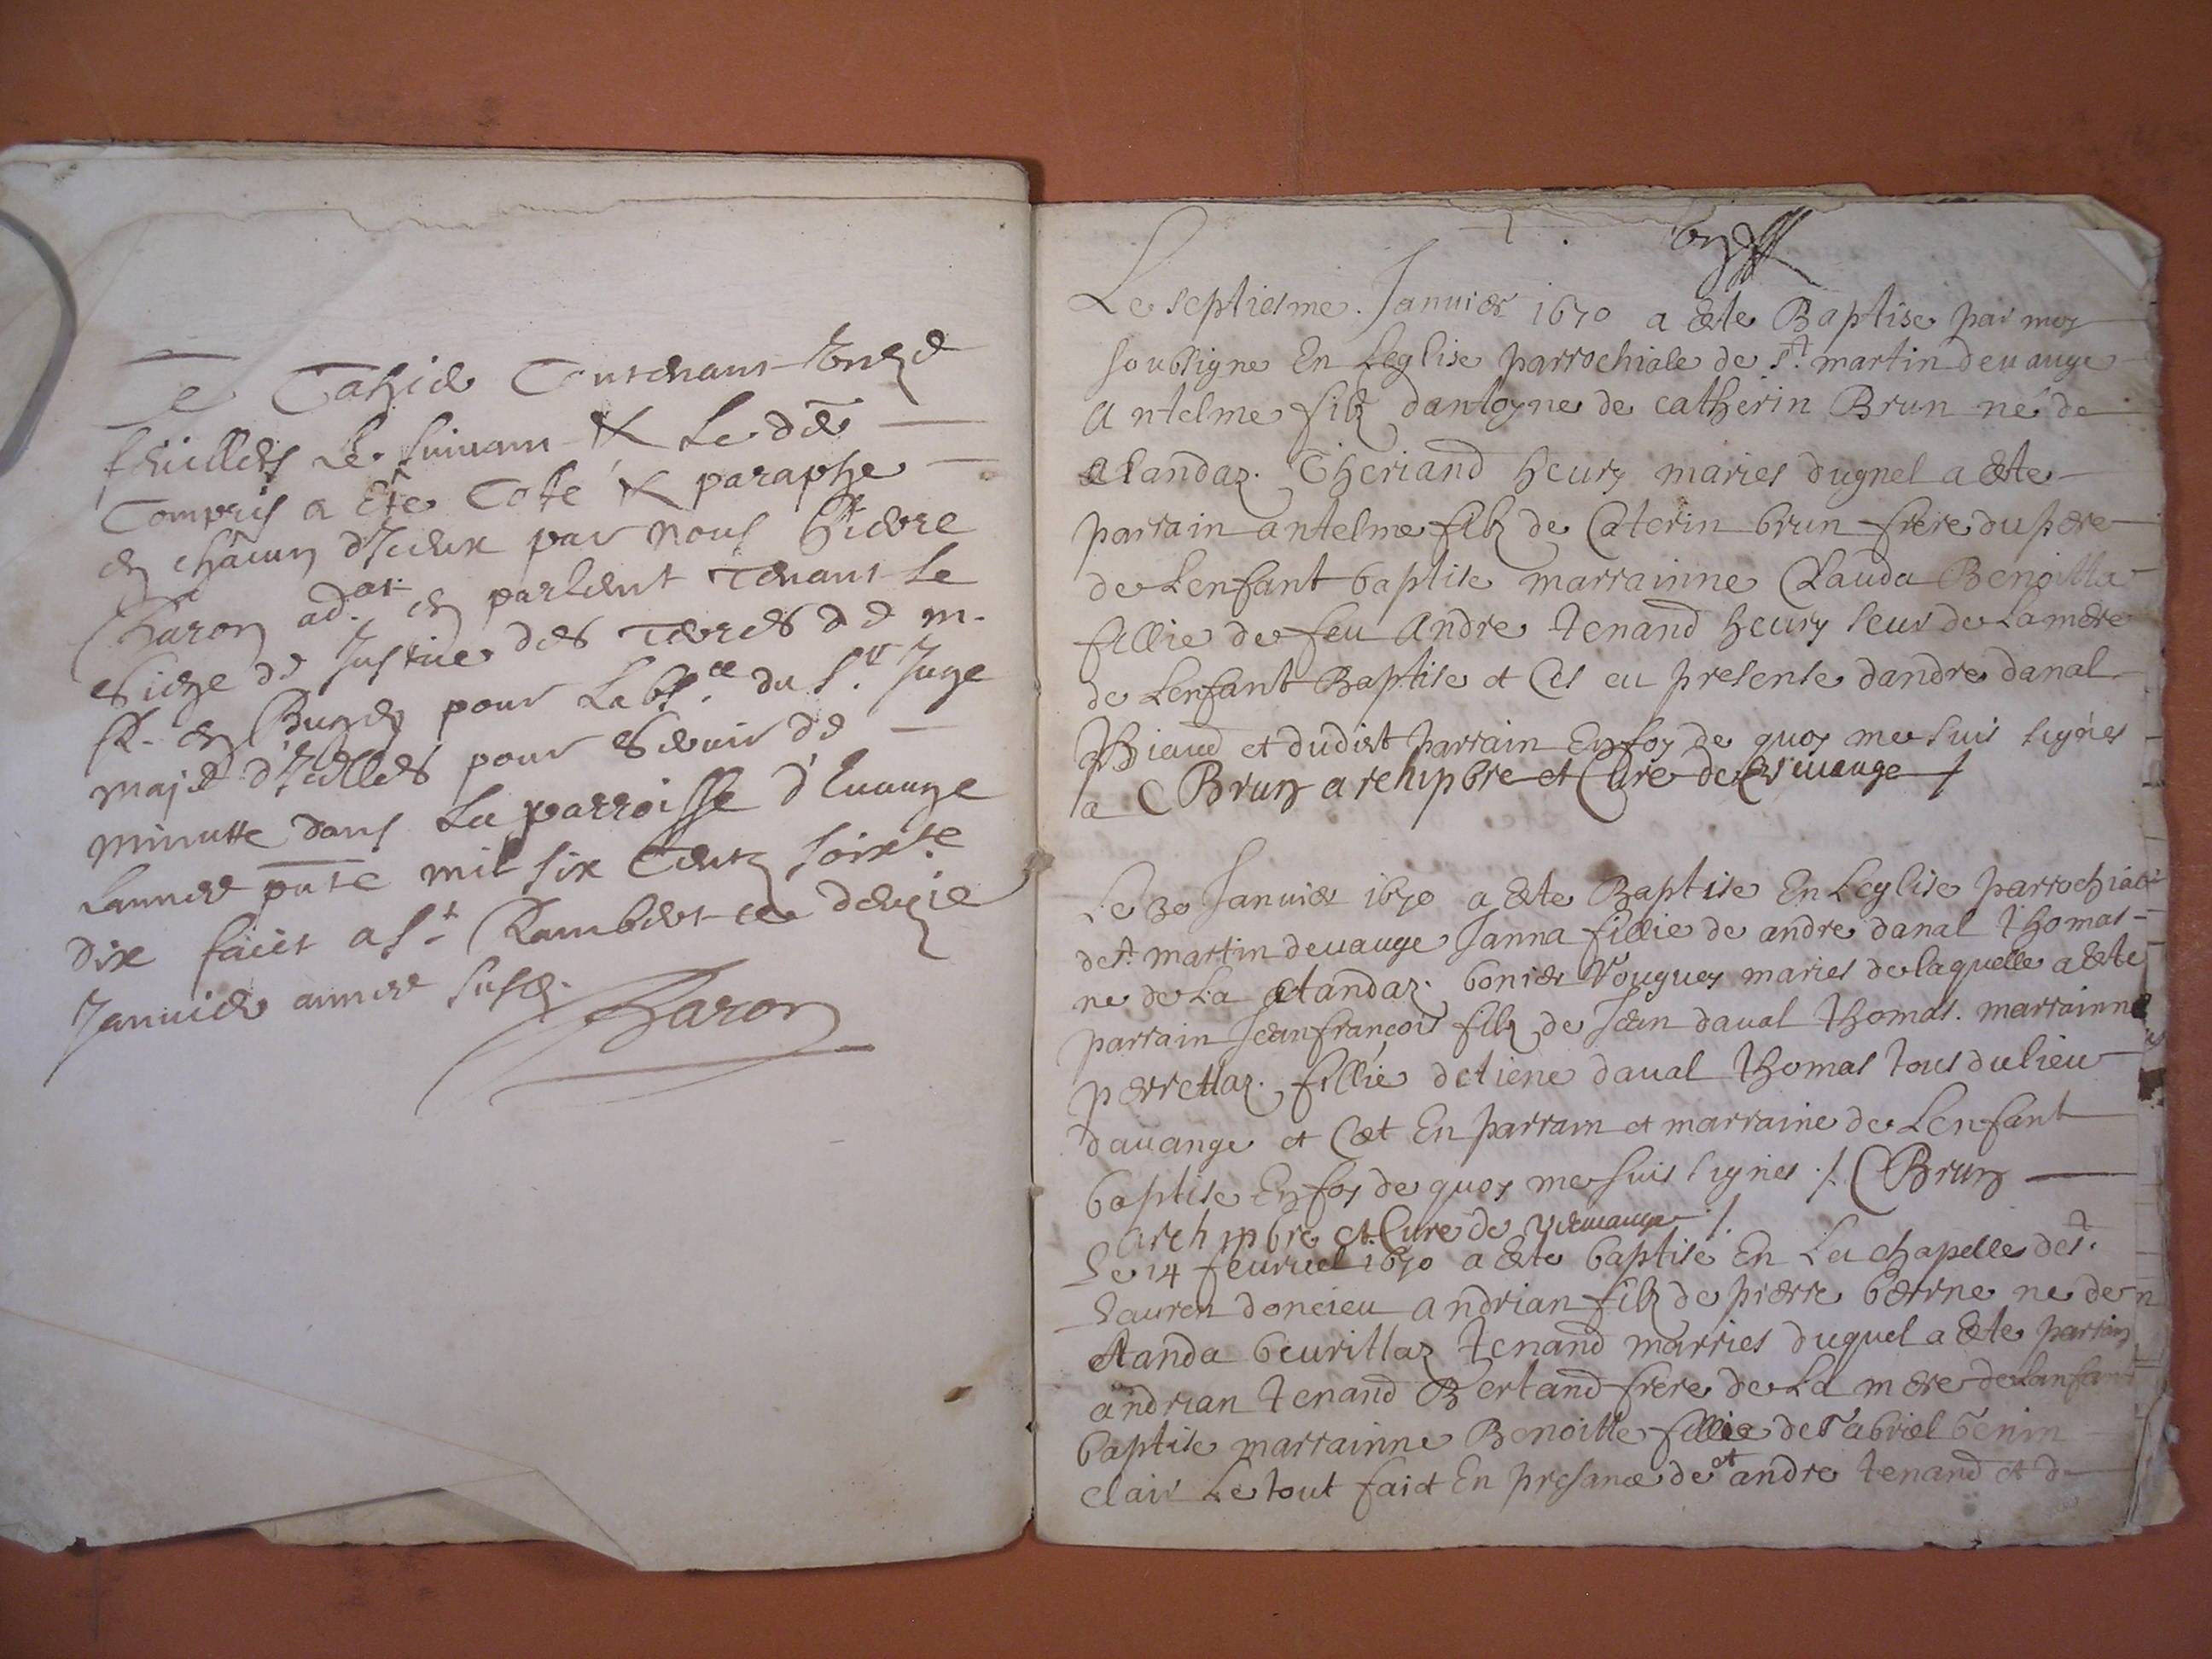 Ce Cahier Contenant Unze
feuillets Le Suivant & Le der
Compris a Ete Coté & paraphe
en châcun d'Iceux par nous Pierre
Charon adat en parlemt Tenant Le
Siege de Justice des Terres de m.
R. en Bugey pour Labsce du Sr Juge
maje d'Icelles pour Servir de
minutte dans La parroisse d'Evange
Lannee pnte mil six Centz soixte
dix faict a St Rambert ce
Janvier annee susd.
Charon
Le septiesme Janvier 1670 a Este Baptise par moy
soubsigne En Leglise parrochiale de St martin devange
Antelme filz dantoyne de catherin Brun né de
Heury maries duquel a Este
parrain antelme filz de Caterin brun frere du pere
de Lenfant baptise marrainne Clauda Benoitta
fillie de feu Andre tenand heury seur de La mere
de Lenfant Baptise et Ces en presense dandre danal
et dudict parrain En foy de quoy me suis signes
a C Brun archipbre et Cure de Evange
Le 30 Janvier 1670 a Este Baptise En Leglise parrochiale
de St martin devange Janna fillie de andre danal thomas
ne de La bonier Vouguey maries de laquelle a Este
parrain Jean françois filz de Jean daval thomas marrainne
perrettaz fillie detiene daval thomas tous du lieu
davange et Cet En parrain et marraine de Lenfant
baptise En foy de quoy me suis signes /. C Brun
archipbre et Cure de /
Le 14 feuvriel 1670 a Este baptisé En La chapelle de St
Lauren doncieu andrian filz de pierre berrne ne de
tenand marries duquel a Este parrain
andrian tenand Bertand frere de La mere de Lanfant
baptise marrainne Benoitte fillie de Gabriel Genin
clair Le tout faict En presance de et andre tenand et d